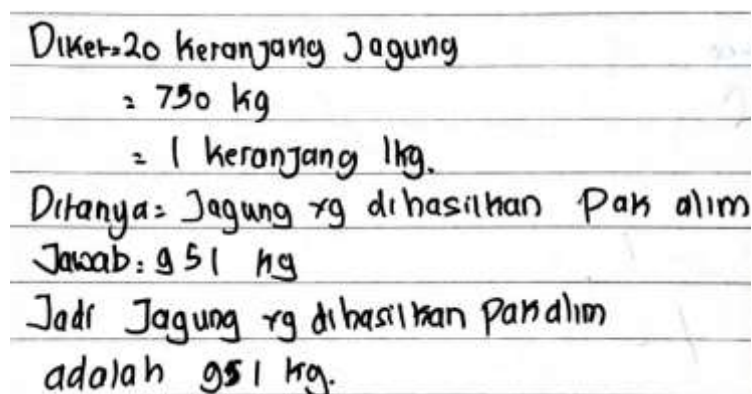 Diket=20 keranjang Jagung
= 750 kg
= 1 keranjang 1kg.
Ditanya= Jagung yg dihasilkan Pak alim
Jawab: 951 kg
Jadi Jagung yg dihasilkan Pak alim
adalah 951 kg.